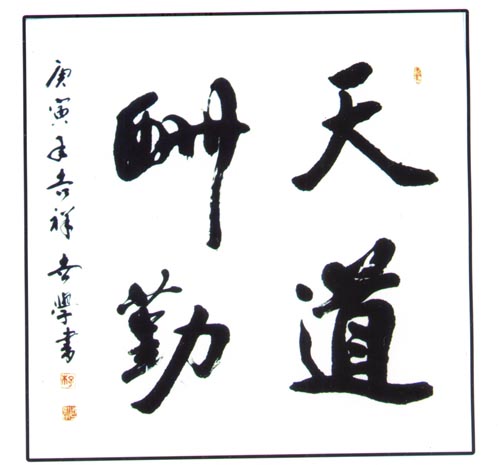 天道
酬勤
庚寅年吉祥學書